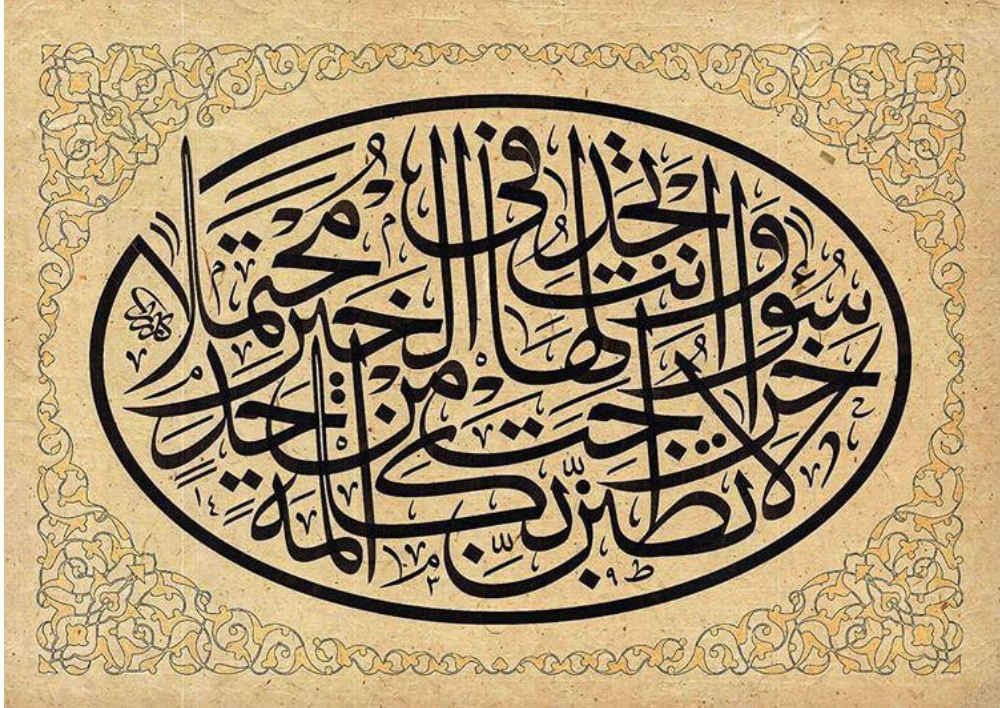 لا تظنن بكلمة خرجت من احد
سوءا وانت تجد لها في الخير محتملا